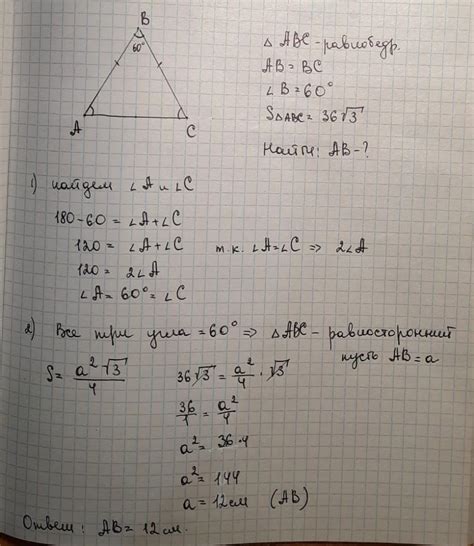 B
60°
A
C
△ ABC - равнобедр.
AB = BC
∠B = 60°
S△ABC = 36√3
Найти: AB - ?
1) найдем ∠A и ∠C
180 - 60 = ∠A + ∠C
120 = ∠A + ∠C т.к. ∠A = ∠C ⇒ 2∠A
120 = 2∠A
∠A = 60° = ∠C
2) Все три угла = 60° ⇒ △ABC - равносторонний
пусть AB = a
S = a²√3/4
36√3 = a²/4 · √3
36/1 = a²/4
a² = 36·4
a² = 144
a = 12 см (AB)
Ответ: AB = 12 см.